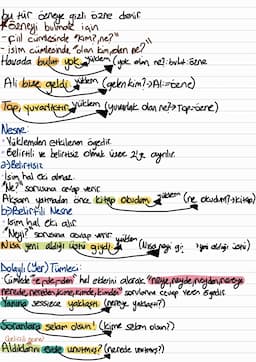 bu tür özneye gizli özne denir
*Özneyi bulmak için
- fiil cümlesinde "kim?, ne?"
- isim cümlesinde "olan kim, olan ne?"
Havada bulut yok → yüklem (yok olan ne?: bulut: özne
Ali bize geldi → yüklem (gelen kim? → Ali = özne)
Top, yuvarlaktır → yüklem (yuvarlak olan ne? → Top = özne)
Nesne:
- Yüklemden etkilenen ögedir.
- Belirtili ve belirtisiz olmak üzere 2'ye ayrılır.
a) Belirtisiz
- İsim hal eki almaz.
"Ne?" sorusuna cevap verir.
Akşam yatmadan önce, kitap okudum → yüklem (ne okudum? → kitap)
b) Belirtili Nesne
- İsim hal eki alır.
"Neyi?" sorusuna cevap verir.
Nisa yeni aldığı üstü giydi → yüklem (Nisa neyi giy: Yeni aldığı üstü)
Dolaylı (Yer) Tümleci:
- Cümlede "-e, -de, -den" hal eklerini alarak "neye, neyde, neyden, nereye
nerede, nereden, kime, kimde, kimden" sorularına cevap veren ögedir.
Yanına sessizce yaklaştı (nereye yaklaştı?)
Soranlara selam olsun! (Kime selam olsun?)
Aldıklarını evde unutmuş? (nerede unutmuş?)